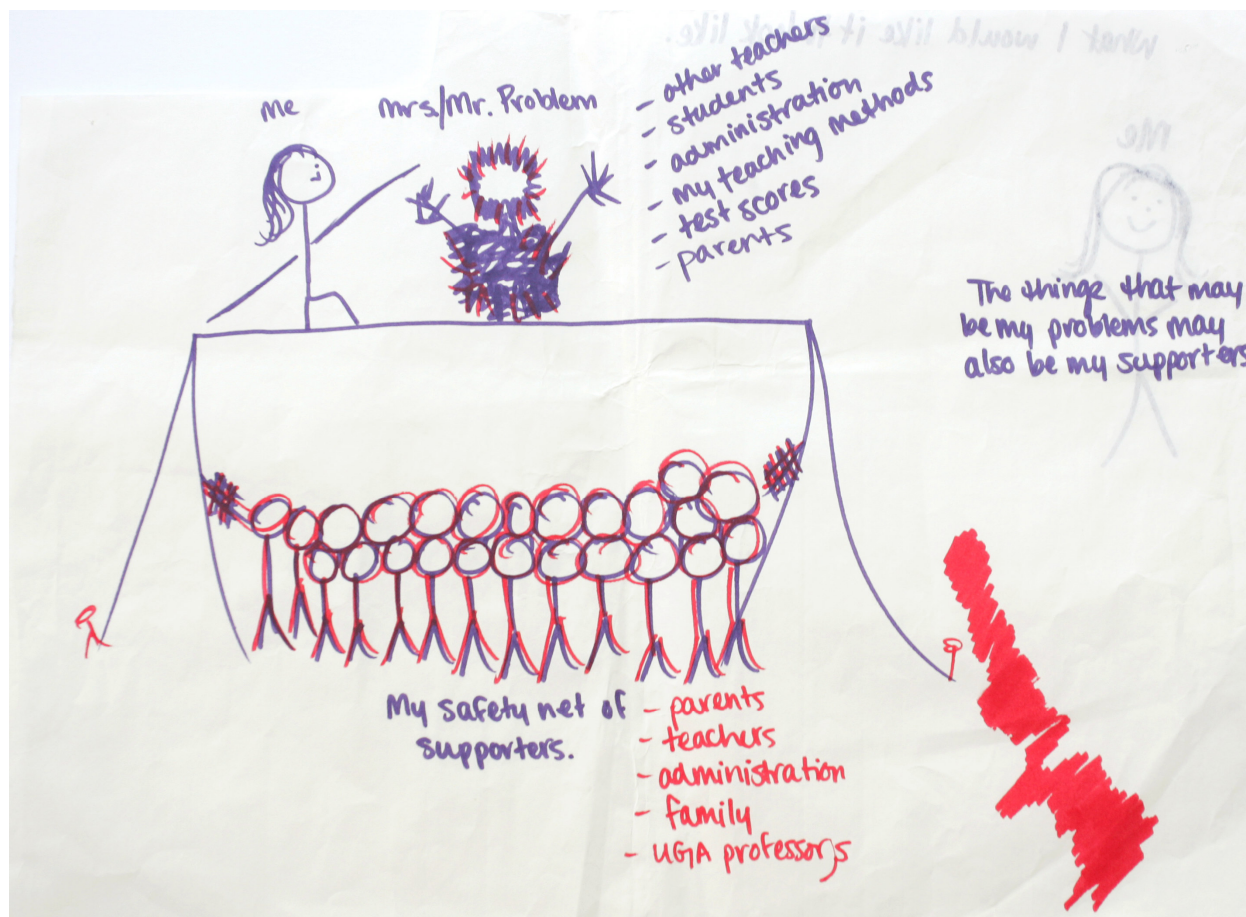 What I would like it to look like.
Me
me
mrs./Mr. Problem
- other teachers
- students
- administration
- my teaching methods
- test scores
- parents
The things that may
be my problems may
also be my supporters
My safety net of
supporters.
- parents
- teachers
- administration
- family
- UGA professors